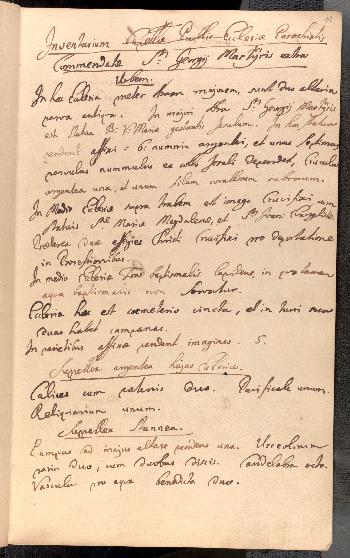 Inventarium Ecclesiae Parochialis
Commendatae Sti Georgij Martyris extra
Urbem.
In hac Ecclesia praeter Aram majorem, sunt duo altaria
parva antiqua. In majori Ara Sti Georgij Martyris
est Statua B: V: Mariae gestantis Jesulum. In hac Statua
pendent affixi 6: nummi argentei, et unus Septimus
parvulus nummulus ex collo Jesuli dependet,
argentea una, et unum filum corallorum rubrorum.
In Medio Ecclesiae supra trabem est imago Crucifixi cum
Statuis Stae Mariae Magdalenae, et Sti Joan: Evangelistae.
Praeterea duae effigies Christi Crucifixi pro deportatione
in Processionibus.
In medio Ecclesiae baptismalis lapideus in quo tamen
aqua baptismalis non servatur.
Ecclesia haec est coemeterio cincta, et in turri
duas habet campanas.
In parietibus affixae pendent imagines. 5.
Supellex argentea hujus Ecclesiae.
Calices cum patenis duo. Pacificale unum.
Reliquiarium unum.
Supellex Stannea.
Lampas ad majus altare pendens una. Urceolorum
paria duo, cum duobus discis. Candelabra octo.
Vascula pro aqua benedicta duo.